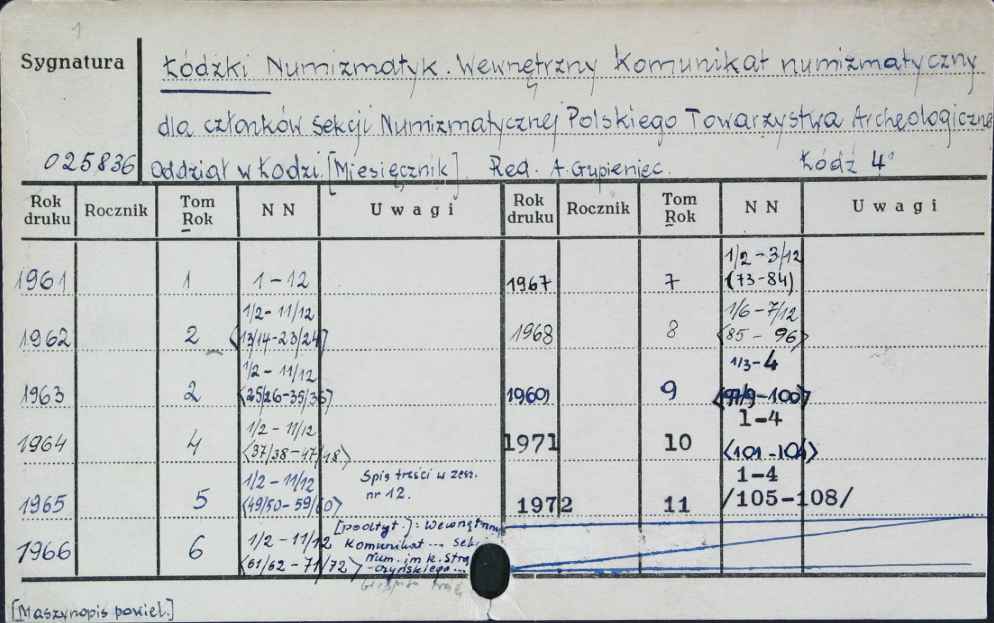 1
Sygnatura
Łódzki Numizmatyk. Wewnętrzny Komunikat numizmatyczny
dla członków sekcji Numizmatycznej Polskiego Towarzystwa Archeologiczne
025836 Oddział w Łodzi. [Miesięcznik]. Red. A. Gupieniec. Łódź 4°
Rok druku Rocznik Tom Rok NN Uwagi Rok druku Rocznik Tom Rok NN Uwagi
1961 1 1-12
1962 2 1/2-11/12 <13/14-23/24>
1963 2 1/2-11/12 <25/26-35/36>
1964 4 1/2-11/12 <37/38-47/48>
1965 5 1/2-11/12 <49/50-59/60> Spis treści w zesz. nr 12.
1966 6 1/2-11/12 <61/62-71/72> [podtyt.]: Wewnętrzny Komunikat ... Sek. Num. im. K. Stro-czyńskiego...
1967 7 1/2-3/12 (73-84)
1968 8 1/6-7/12 <85-96>
9 1/3-4
1971 10 1-4 <101-104>
1972 11 1-4 /105-108/
[Maszynopis powiel.]